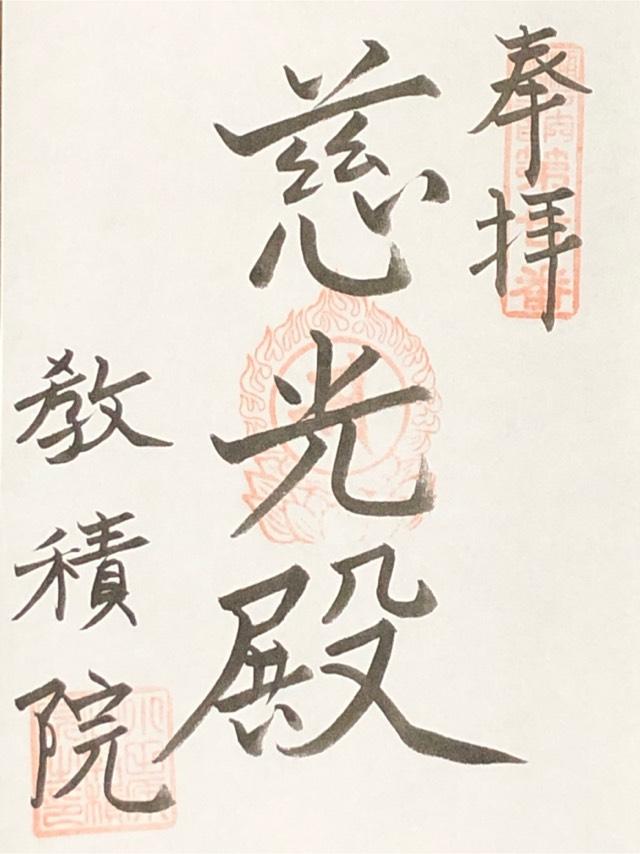 奉拝
慈光殿
教積院